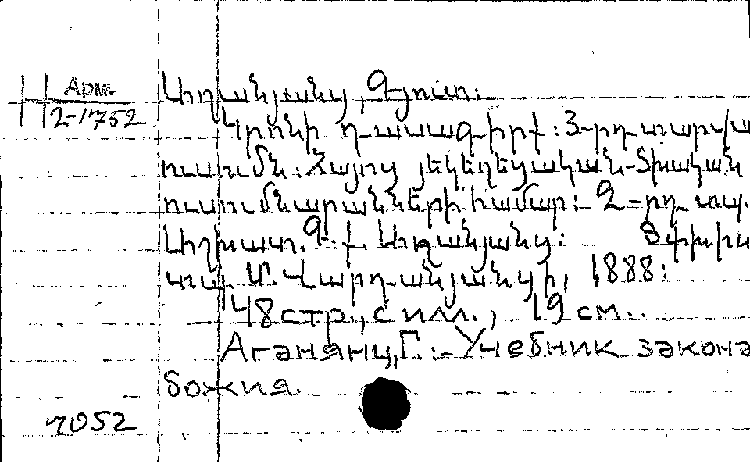 Арм.
2-1752
Աղանյանց, Գյուտ։
Կրոնի դասագիրք։ 3-րդ տարվա
ուսումն։ Հայոց յեկեղեցական-ծխական
ուսումնարանների համար։ 2-րդ տպ.
Աշխատ. Գ. ք. Աղանյանց։ Թիֆլիս
տպ. Մ. Վարդանյանցի, 1888։
48 стр., с илл., 19 см.
Аганянц, Г. - Учебник закона
божия.
7052